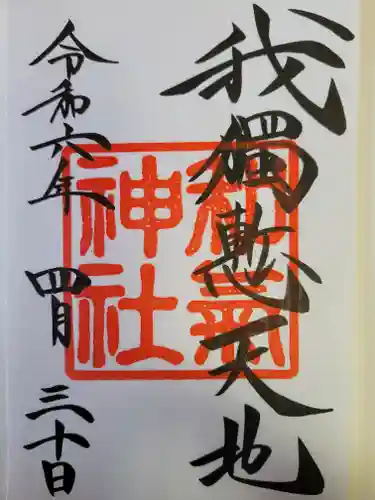 我獨慙天地
和氣神社
令和六年 四月 三十日